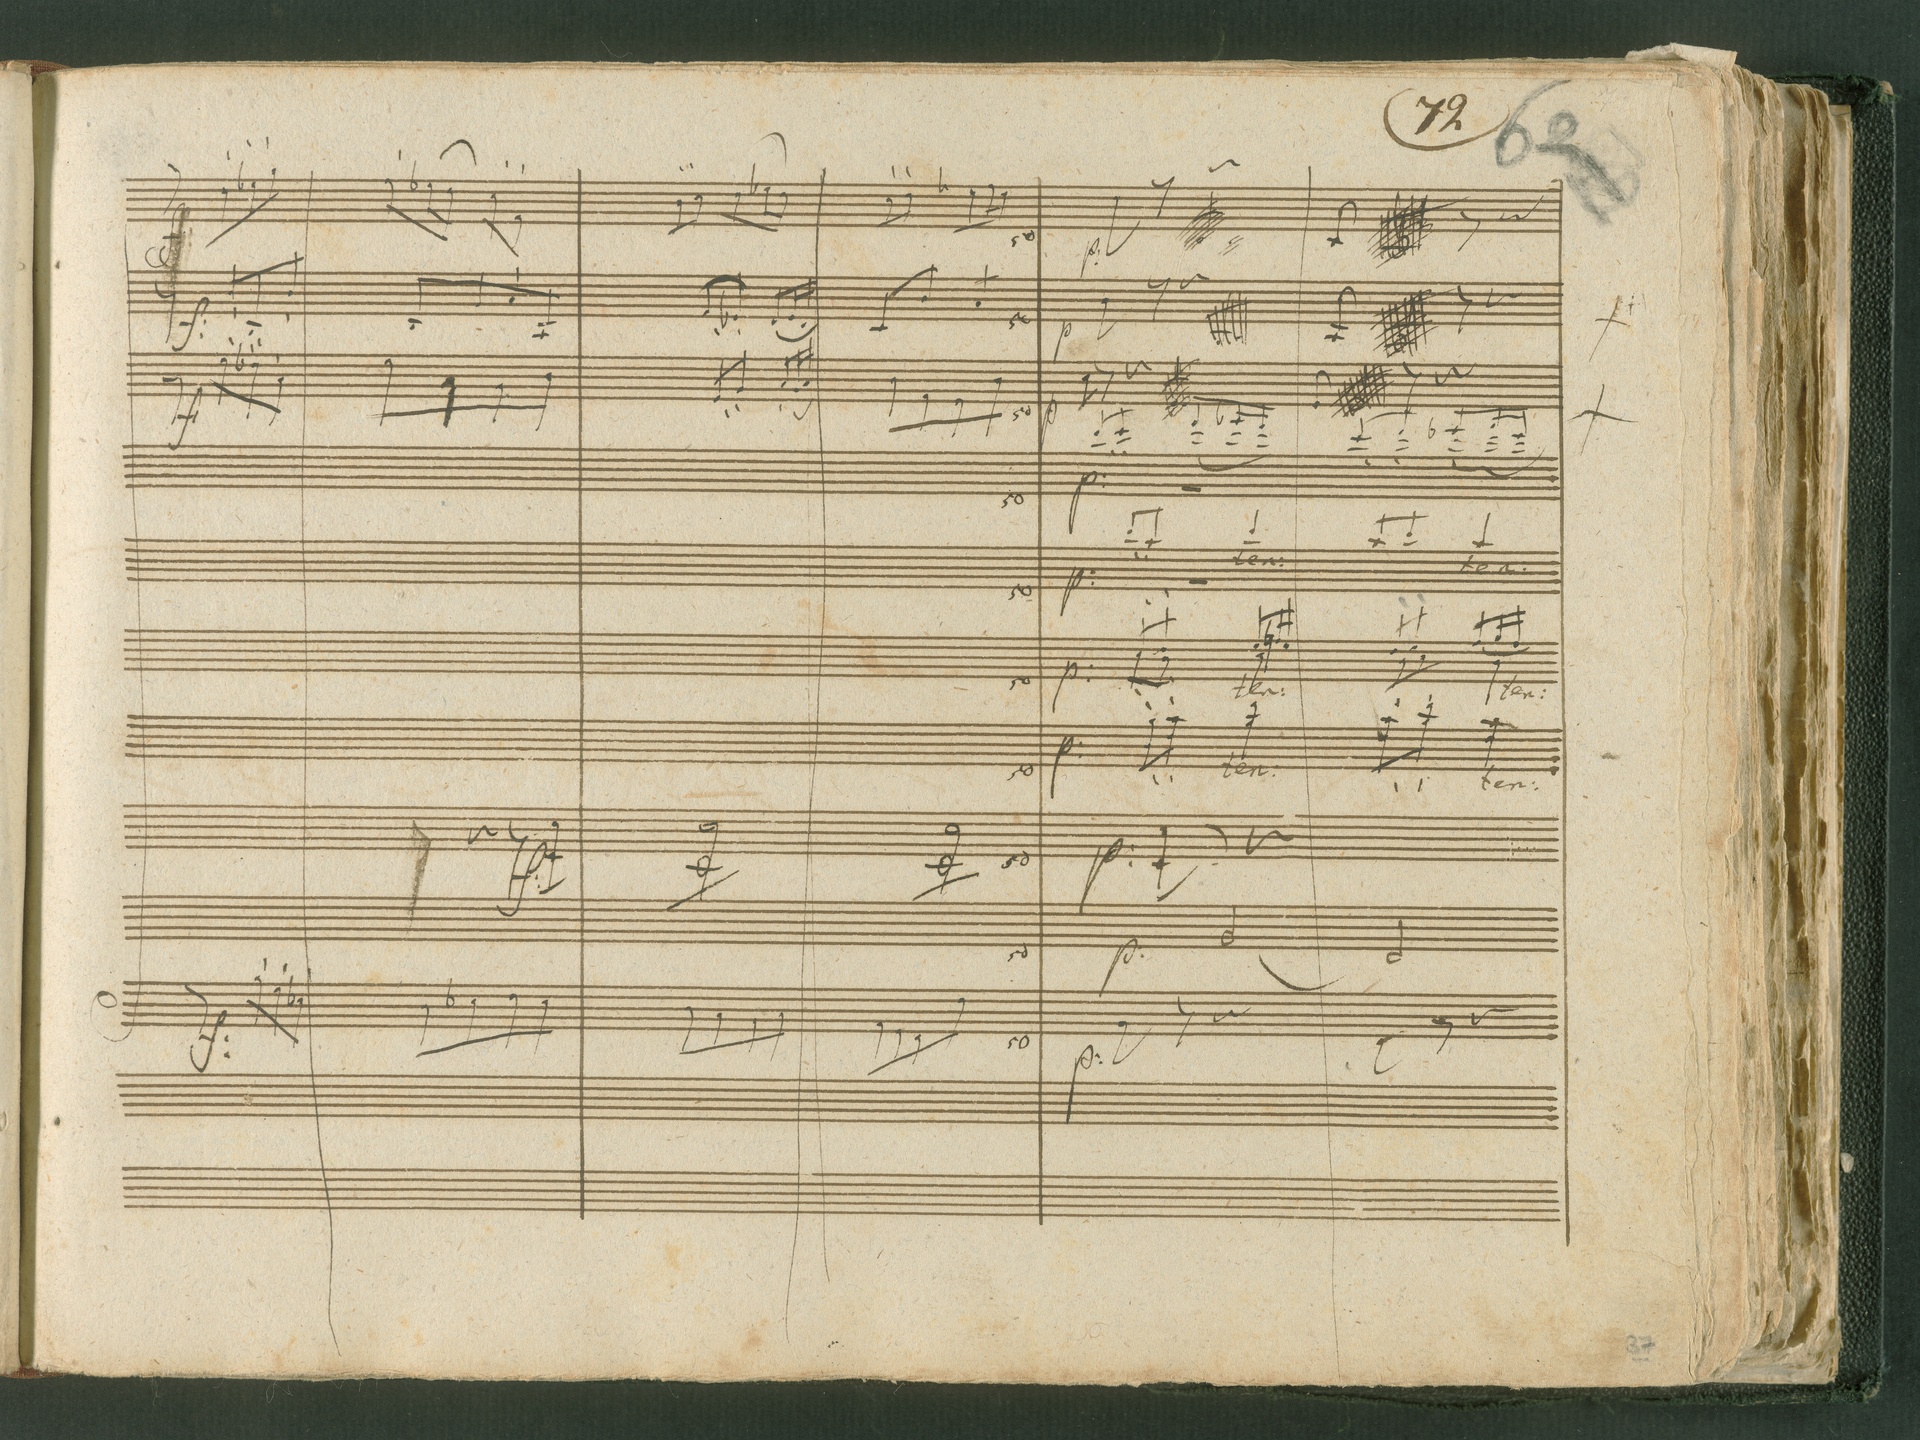 72
62
50
p:
50
f:
p
50
f
p
50
p:
50
p:
ten: ten:
50
p:
ten: ten:
50
p:
ten: ten:
50
f:
p:
50
p:
50
f:
p:
37